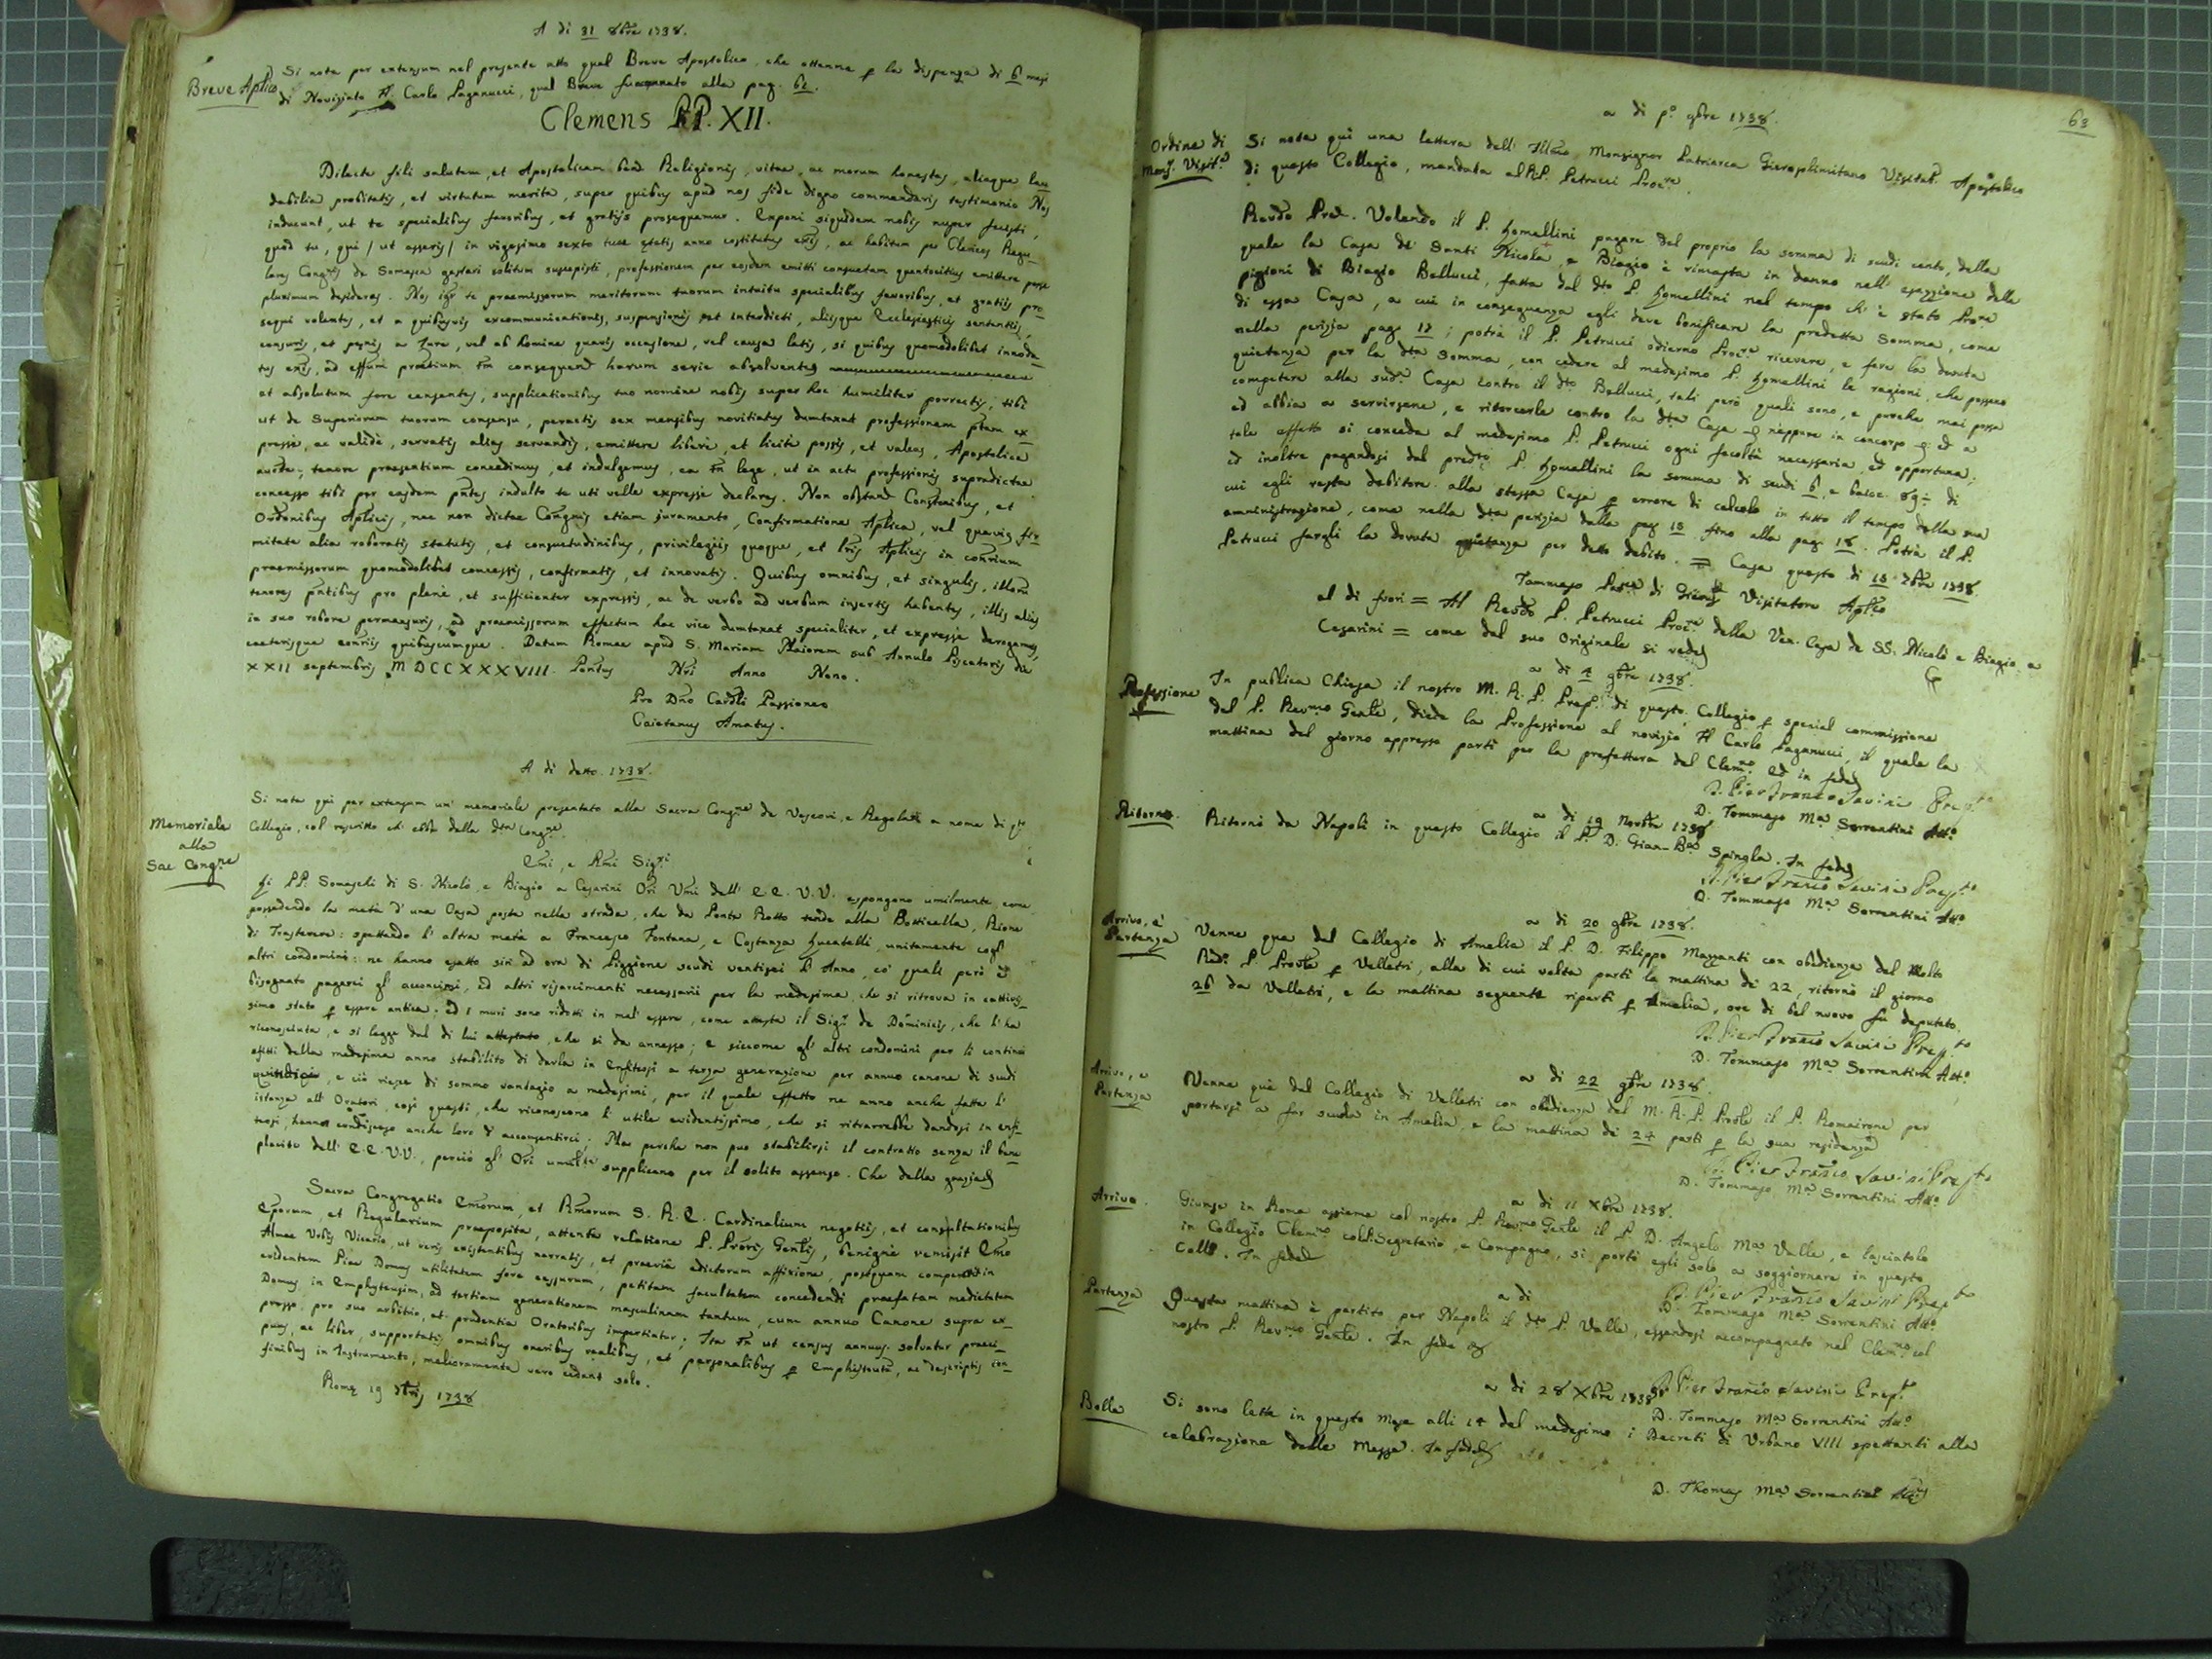 A di 31 8bre 1738.
Breve Aplico
Si nota per extensum nel presente atto qual Breve Apostolico, che ottenne p la dispenza di 6 mesi
di Noviziato Carlo Paganucci, qual Breve fu alla pag. 62.
Clemens PP. XII.
Dilecte fili salutem, et Apostolicam Religionis, vitae, ac morum honestas, aliaque lau
dabilia probitatis, et virtutum merita, super quibus apud nos fide digno commendaris testimonio Nos
inducunt, ut te specialibus favoribus, et gratijs prosequamur. Exponi siquidem nobis nuper fecisti,
quod tu, qui / ut asseris / in vigesimo sexto tuae etatis anno costitutus exis, ac habitum per Clericos Regu-
lares Congnis de Somasca gestari solitum suscepisti, professionem per eosdem emitti consuetam quantocitius emittere posse
plurimum desideras. Nos igr te praemissorum meritorum tuorum intuitu specialibus favoribus, et gratiis pro
sequi volentes, et a quibusvis excommunicationis, suspensionis et interdicti, aliisque Ecclesiasticis sententiis,
censuris, et penis a Jure, vel ab homine quavis occasione, vel causa latis, si quibus quomodolibet innoda
tus exis, ad effum tm consequend harum serie absolventes
et absolutum fore censentes, supplicationibus tuo nomine nobis super hoc humiliter porrectis, tibi
ut de Superiorum tuorum consensu, peractis sex mensibus novitiatus dumtaxat professionem ptam ex
presse, ac validè, servatis alias servandis, emittere liberè, et licitè possis, et valeas, Apostolica
aucte, tenore praesentium concedimus, et indulgemus, ea tn lege, ut in actu professionis supradictae
concesso tibi per easdem pntes indulto te uti velle expressè declares. Non obstant Constonibus, et
Ordonibus Aplicis, nec non dictae Congnis etiam juramento, Confirmatione Aplica, vel quavis fir
mitate alia roboratis statutis, et consuetudinibus, privilegiis quoque, et Lris Aplicis in conrium
praemissorum quomodolibet concessis, confirmatis, et innovatis. Quibus omnibus, et singulis, illoru
tenores pntibus pro plenè, et sufficienter expressis, ac de verbo ad verbum insertis habentes, illis alias
in suo robore permansuris, ad praemissorum effectum hac vice dumtaxat specialiter, et expressè derogamus,
caeterisque conriis quibuscumque. Datum Romae apud S. Mariam Maiorem sub Annulo Piscatoris die
XXII septembris MDCCXXXVIII. Pontus Nri Anno Nono.
Pro Dno Cardli Passioneo
Caietanus Amatus.
A di detto 1738.
Memoriale
alla
Sac Congne
Si nota qui per extensum un' memoriale presentato alla Sacra Congne de Vescovi, e Regolari a nome di qto
Collegio, col rescritto ch' ebbe dalla dta Congne.
Emi, e Rmi Sigri
Li PP. Somaschi di S. Nicolò, e Biagio a Cesarini Ori Umi dell' E.E. V.V. espongono umilmente, come
possedendo la metà d' una Casa posta nella strada, che da Ponte Rotto tende alla Botticella, Rione
di Trastevere: spettando l' altra metà a Francesco Fontana, e Costanza Lucatelli, unitamente cogl'
altri condomini: ne hanno esatto sin ad ora di Piggione scudi ventisei l' Anno, co' quali però è
bisognato pagarci gl' acconcimi, ed altri risarcimenti necessarii per la medesima, che si ritrova in cattivis
simo stato p essere antica: ed i muri sono ridotti in mal' essere, come attesta il Sigr de Dominicis, che l' ha
riconosciuta, e si legge dal di lui attestato, che si da annesso; e siccome gl' altri condomini per li continui
sfitti della medesima anno stabilito di darla in Enfiteosi a terza generazione per annuo canone di scudi
quindici, e ciò riesce di sommo vantagio a medesimi, per il quale effetto ne anno anche fatta l'
istanza all' Oratori, così questi, che riconoscono l' utile evidentissimo, che si ritrarrebbe dandosi in enfi
teosi, hanno condisceso anche loro d' acconsentirci. Ma perchè non può stabilirsi il contratto senza il bene
placito dell' E.E. V.V., perciò gl' Ori umilte supplicano per il solito assenso. Che della grazia
Sacra Congregatio Emorum, et Rmorum S. R. E. Cardinalium negotiis, et consultationibus
Eporum, et Regularium praeposita, attenta relatione P. Proris Genlis, benignè remisit Emo
Almae Urbis Vicario, ut veris existentibus narratis, et praeviâ edictorum affixione, postquam
evidentem Piae Domus utilitatem fore cessurum, petitam facultatem concedendi praefatam medietatem
Domus in Emphyteusim, ad tertiam generationem masculinam tantum, cum annuo Canone supra ex-
presso, pro suo arbitio, et prudentia Oratoribus impertiatur; Ita tn ut census annuus solvatur praeci-
puus, ac liber, supportatis omnibus oneribus realibus, et personalibus p Emphiteuta, ac descriptis con-
finibus in Instrumento, melioramenta vero cedant solo.
Rome 19 7bris 1738
63
a di po 9bre 1738.
Ordine di
Monsr Visitre
Si nota quì una lettera dell' Illmo Monsignor Patriarca Gierosolimitano Visitatre Apostolico
di questo Collegio, mandata al P. Petrucci Procre.
Revdo Pre. Volendo il P. Lomellini pagare del proprio la somma di scudi cento, della
quale la Casa de' Santi Nicola, e Biagio è rimasta in danno nell' esazzione delle
pigioni di Biagio Bellucci, fatta dal dto P. Lomellini nel tempo ch' è stato Procre
di essa Casa, a cui in conseguenza egli deve bonificare la predetta Somma, come
nella perizia pag. 17; potrà il P. Petrucci odierno Procre ricevere, e fare la dovuta
quietanza per la dta somma, con cedere al medesimo P. Lomellini le ragioni, che possono
competere alla suda Casa contro il dto Bellucci, tali però quali sono, e purche mai possa
ed abbia a servirsene, e ritorcerle contro la dta Casa neppure in concorso ed a
tale effetto si conceda al medesimo P. Petrucci ogni facoltà necessaria, ed opportuna;
ed inoltre pagandosi dal predto P. Lomellini la somma di scudi 6, e baioc. 89 di
cui egli resta debitore alla stessa Casa p errore di calcolo in tutto il tempo della sua
amministrazione, come nella dta perizia dalla pag 15 fino alla pag 18. Potrà il P.
Petrucci fargli la dovuta quietanza per detto debito. = Casa questo di 15 7bre 1738.
Tommaso Patrca di Gierus Visitatore Aplico
al di fuori = Al Revdo P. Petrucci Procre della Ven. Casa de SS. Nicolò e Biagio a
Cesarini = come dal suo Originale si vede
a di 4 9bre 1738.
Professione
In publica Chiesa il nostro M. R. P. Prepto di questo Collegio p special commissione
del P. Revmo Genle, diede la Professione al novizio Carlo Paganucci, il quale la
mattina del giorno appresso partì per la prefettura del Clemno ed in fede
D. Pier Franco Savini Prepto
D. Tommaso Ma Sorrentini Atto
a di 19 Novbre 1738
Ritorno.
Ritornò da Napoli in questo Collegio il P. D. Gian-Bta Spinola. In fede
D. Pier Franco Savini Prepto
D. Tommaso Ma Sorrentini Atto
a di 20 9bre 1738.
Arrivo, è
Partenza
Venne qua dal Collegio di Amelia il P. D. Filippo Mazzanti con obedienza del Molto
Rdo P. Provle p Velletri, alla di cui volta partì la mattina di 22, ritornò il giorno
26 da Velletri, e la mattina seguente ripartì p Amelia, ove di bel nuovo fu deputato.
D. Pier Franco Savini Prepto
D. Tommaso Ma Sorrentini Atto
a di 22 9bre 1738.
Arrivo, e
Partenza
Venne quà dal Collegio di Velletri con obedienza del M. R. P. Provle il P. Romairone per
portarsi a far scuola in Amelia, e la mattina de 24 partì p la sua residenza
D. Pier Franco Savini Prepto
D. Tommaso Ma Sorrentini Atto
a di 11 Xbre 1738.
Arrivo.
Giunse in Roma assieme col nostro P. Revmo Genle il P. D. Angelo Ma Valle, e lasciatolo
in Collegio Clemno col P. Segretario, e Compagno, si portò egli solo a soggiornare in questo
Collo. In fede
D. Pier Franco Savini Prepto
D. Tommaso Ma Sorrentini Atto
a di
Partenza
Questa mattina è partito per Napoli il dto P. Valle, essendosi accompagnato nel Clemno col
nostro P. Revmo Genle. In fede
D. Pier Franco Savini Prepto
D. Tommaso Ma Sorrentini Atto
a di 28 Xbre 1738
Bolle
Si sono lette in questo Mese alli 14 del medesimo i Decreti di Urbano VIII spettanti alla
celebrazione delle Messe. In fede
D. Thomas Ma Sorrentini